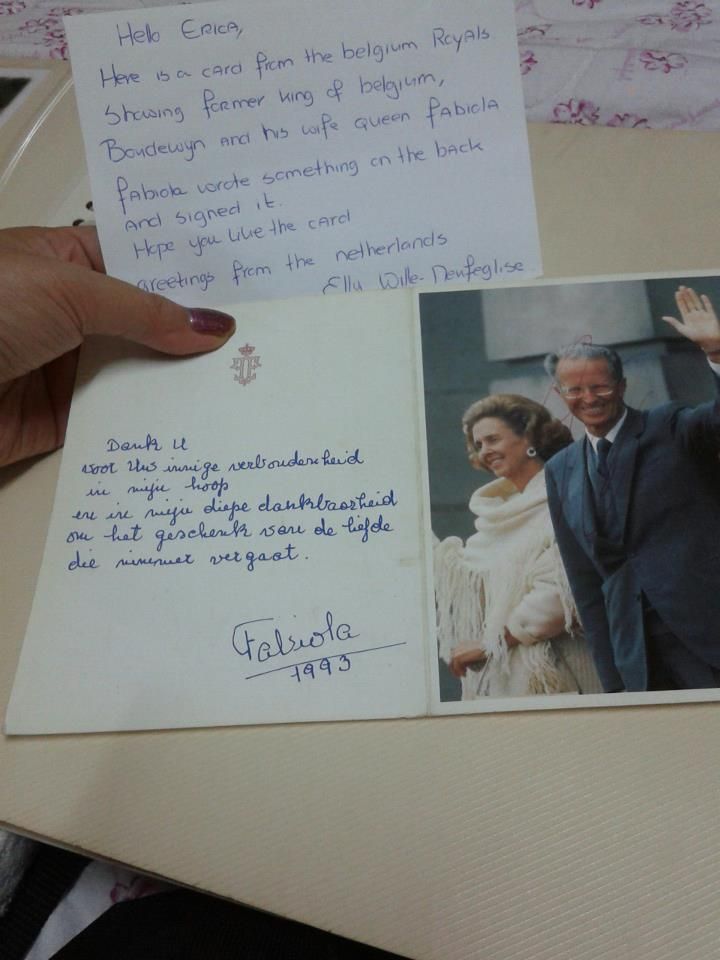 Hello ERICA,
Here is a card from the belgium Royals
Showing former king of belgium,
Boudewyn and his wife queen fabiola
fabiola wrote something on the back
and signed it.
Hope you like the card
greetings from the netherlands
Ella Wille-
Dank U
voor Uw innige verbondenheid
in mijn hoop
en in mijn diepe dankbaarheid
om het geschenk van de liefde
die nimmer vergaat.
Fabiola
1993